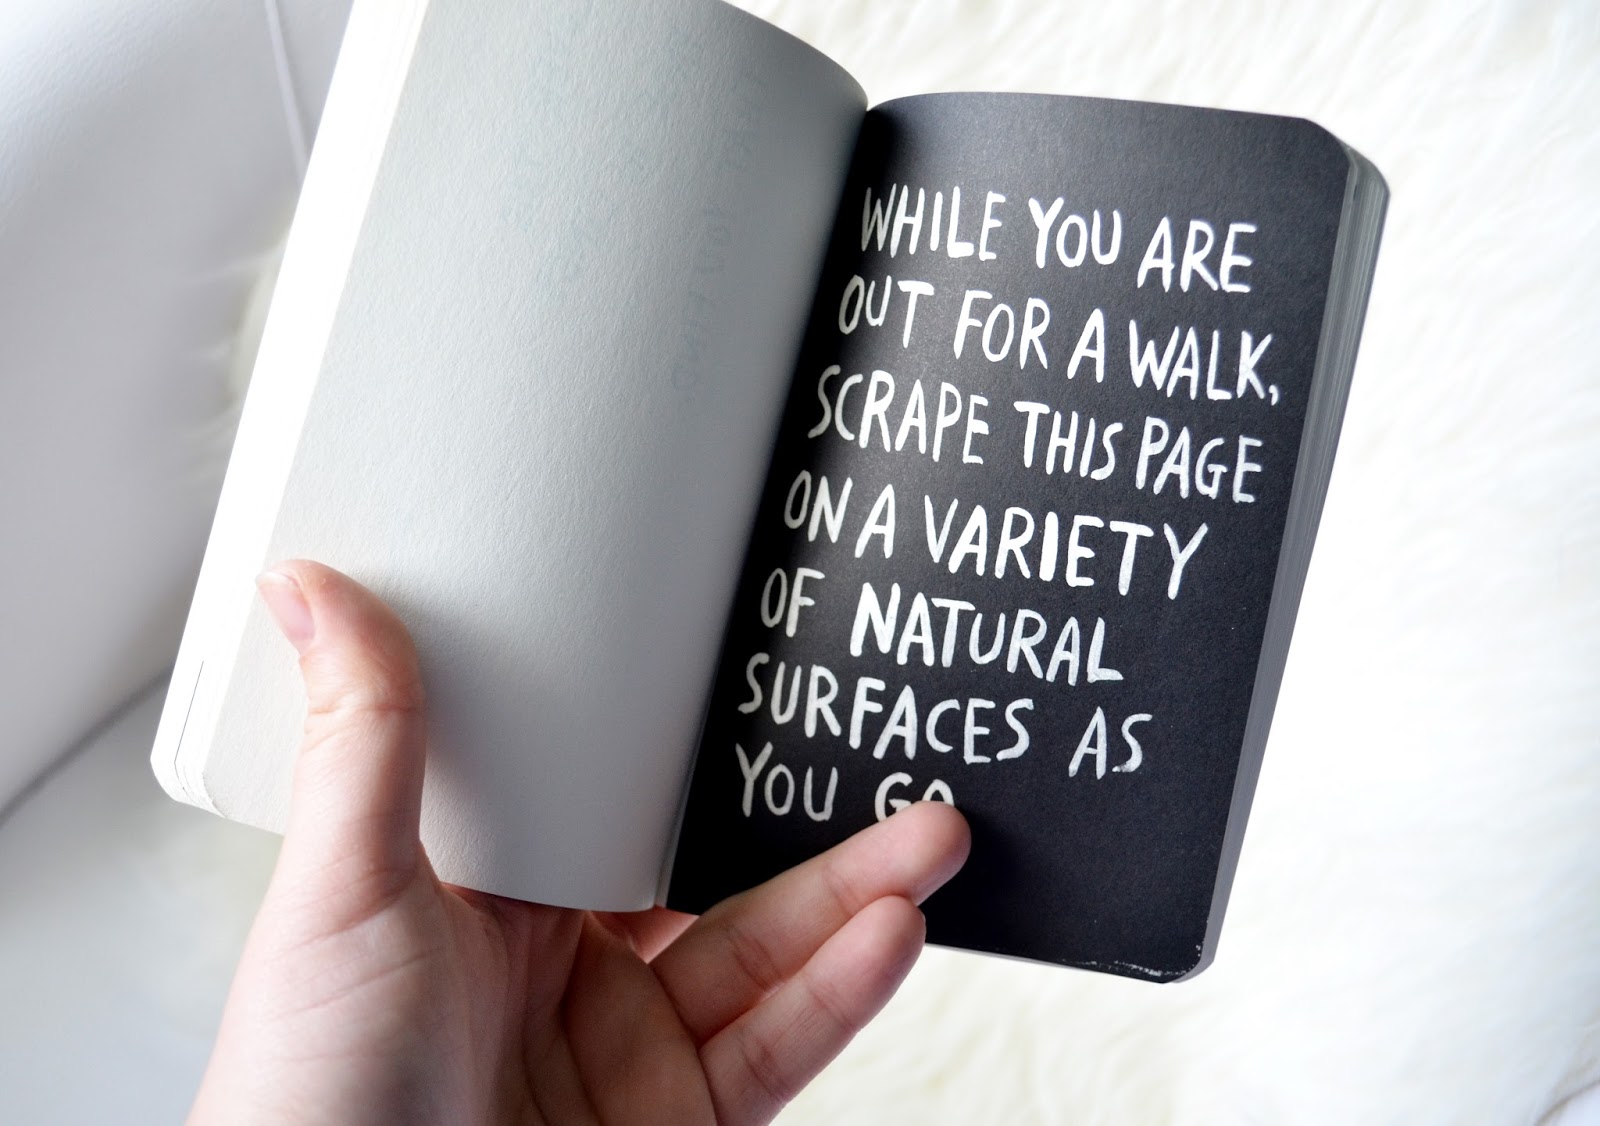 WHILE YOU ARE
OUT FOR A WALK,
SCRAPE THIS PAGE
ON A VARIETY
OF NATURAL
SURFACES AS
YOU GO